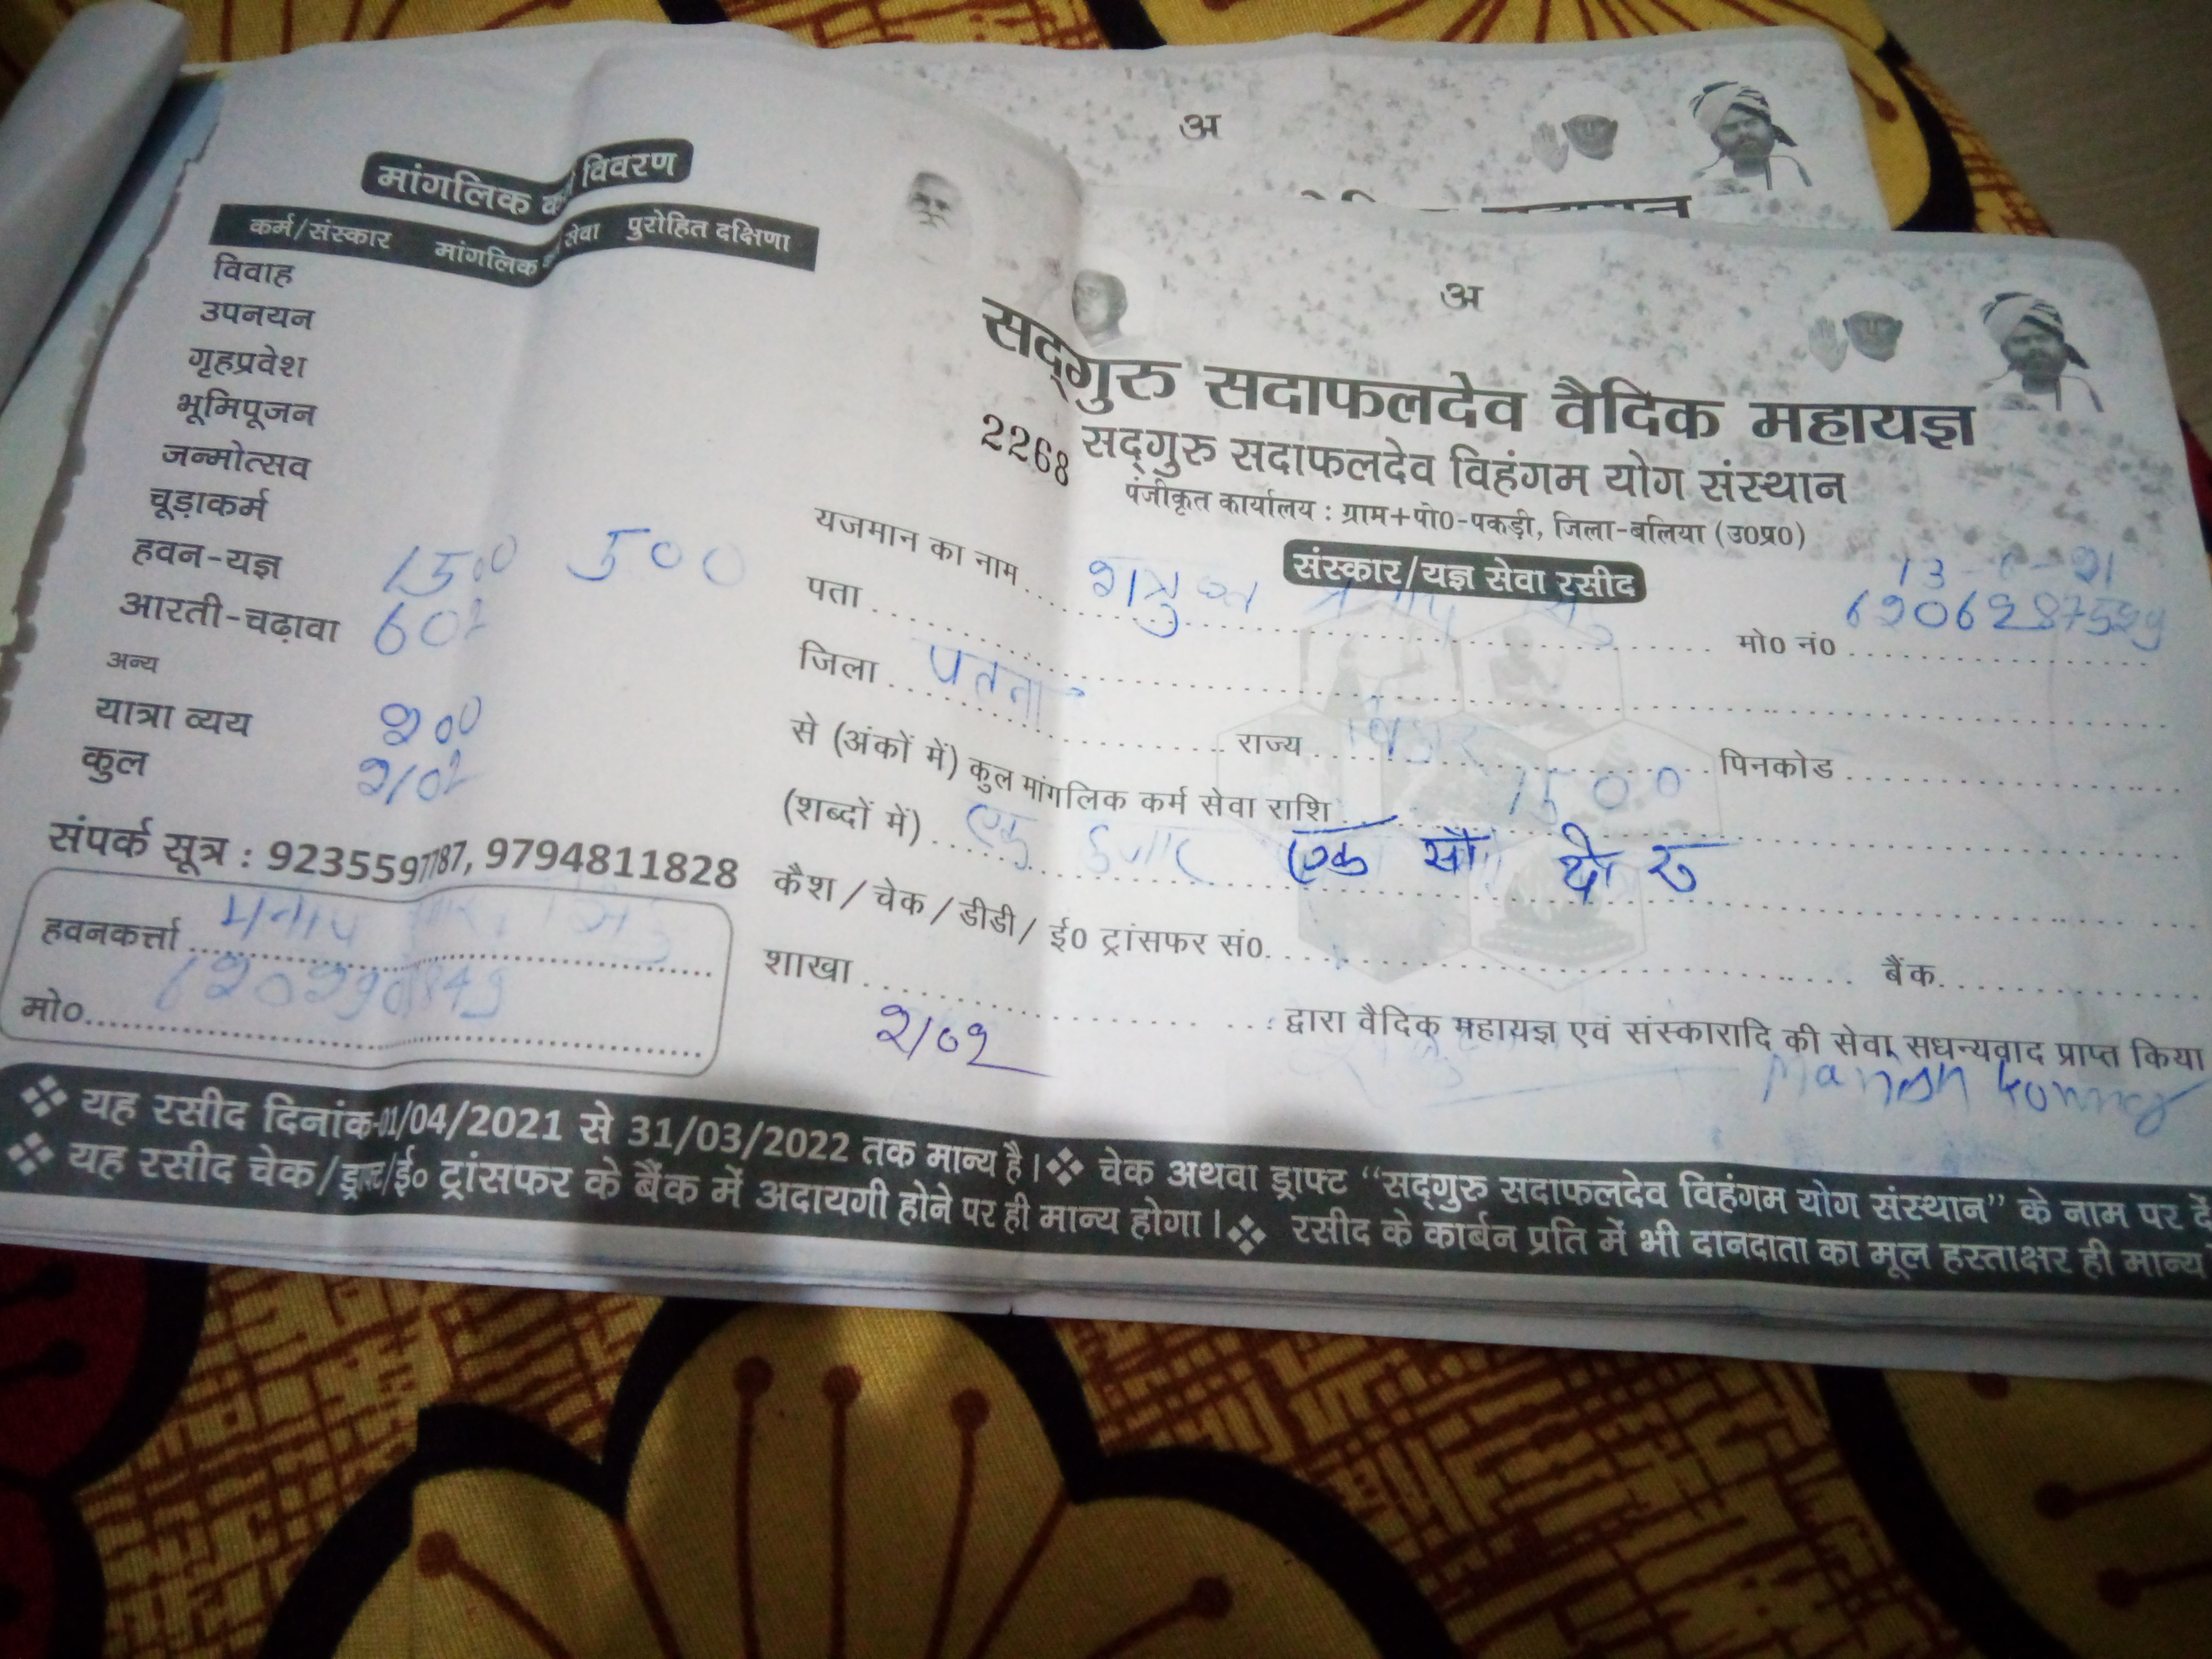 अ
अ
मांगलिक विवरण
कर्म/संस्कार मांगलिक सेवा पुरोहित दक्षिणा
विवाह
उपनयन
गृहप्रवेश
भूमिपूजन
जन्मोत्सव
चूड़ाकर्म
हवन-यज्ञ 1500 500
आरती-चढ़ावा
अन्य
यात्रा व्यय २००
कुल
संपर्क सूत्र : 9235597787, 9794811828
हवनकर्त्ता
मो०
सद्गुरु सदाफलदेव वैदिक महायज्ञ
2268 सद्गुरु सदाफलदेव विहंगम योग संस्थान
पंजीकृत कार्यालय : ग्राम+पो0-पकड़ी, जिला-बलिया (उ0प्र0)
संस्कार/यज्ञ सेवा रसीद
यजमान का नाम मो0 नं0
पता
जिला पतना राज्य पिनकोड
से (अंकों में) कुल मांगलिक कर्म सेवा राशि 1500
(शब्दों में) एक हजार एक सौ दो रु
कैश / चेक / डीडी / ई0 ट्रांसफर सं0 बैंक
शाखा द्वारा वैदिक महायज्ञ एवं संस्कारादि की सेवा सधन्यवाद प्राप्त किया
२१०२
❖ यह रसीद दिनांक-01/04/2021 से 31/03/2022 तक मान्य है। ❖ चेक अथवा ड्राफ्ट “सद्गुरु सदाफलदेव विहंगम योग संस्थान” के नाम पर
❖ यह रसीद चेक/ड्राफ्ट/ई० ट्रांसफर के बैंक में अदायगी होने पर ही मान्य होगा। ❖ रसीद के कार्बन प्रति में भी दानदाता का मूल हस्ताक्षर ही मान्य